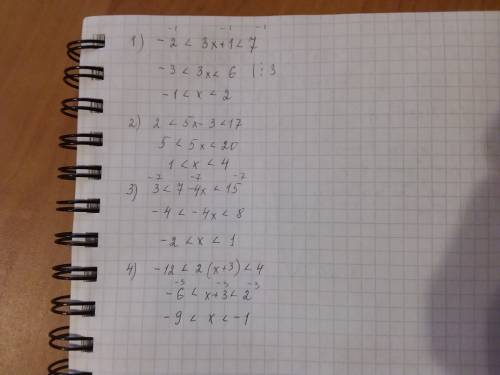 -1 -1 -1
1) -2 < 3x+1 < 7
-3 < 3x < 6 | : 3
-1 < x < 2
2) 2 < 5x-3 < 17
5 < 5x < 20
1 < x < 4
-7 -7 -7
3) 3 < 7-4x < 15
-4 < -4x < 8
-2 < x < 1
4) -12 < 2(x+3) < 4
-3 -3 -3
-6 < x+3 < 2
-9 < x < -1